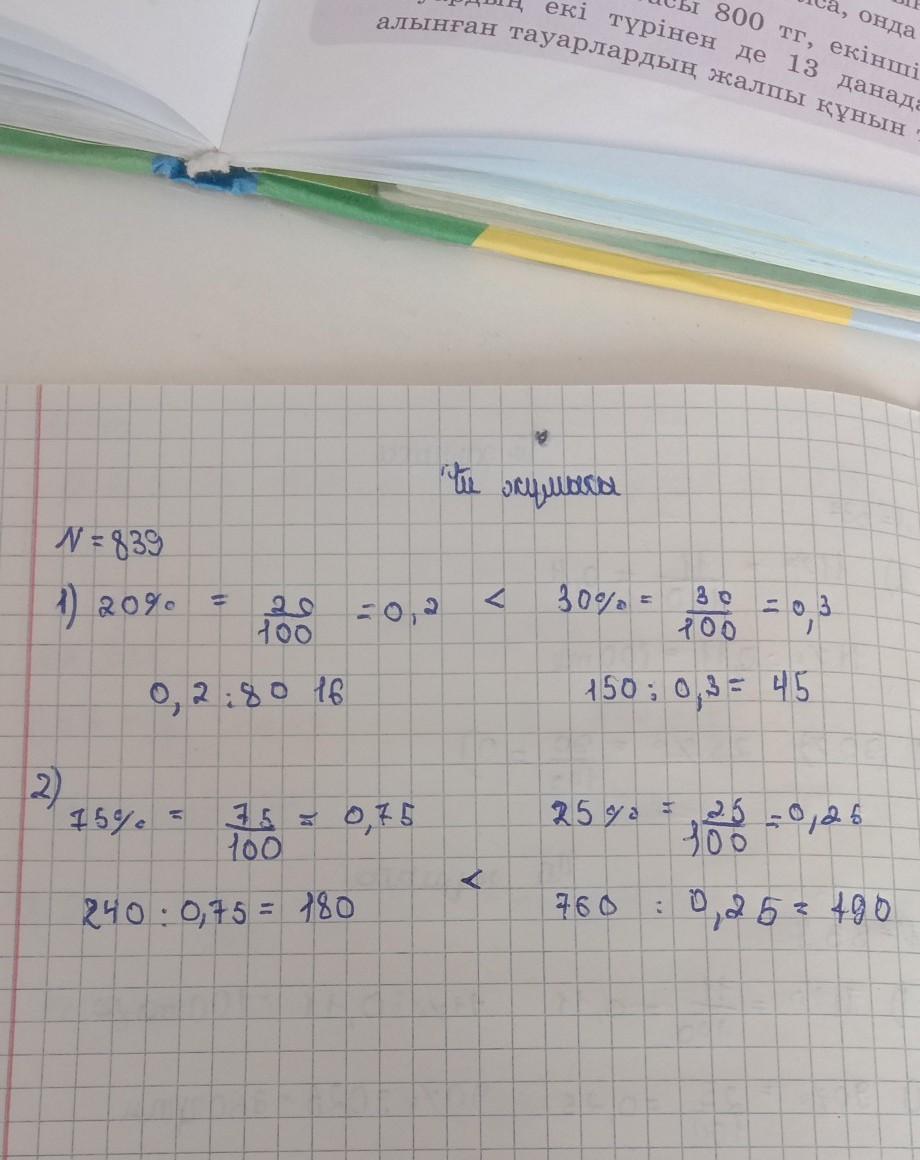 сы 800 тг, екінші
са, онда
ардың екі түрінен де 13 данада
алынған тауарлардың жалпы құнын
Үй жұмысы
N = 839
1) 20% = 20/100 = 0,2 < 30% = 30/100 = 0,3
0,2 : 80 16 150 : 0,3 = 45
2)
75% = 75/100 = 0,75 25% = 25/100 = 0,25
<
240 : 0,75 = 180 760 : 0,25 = 190